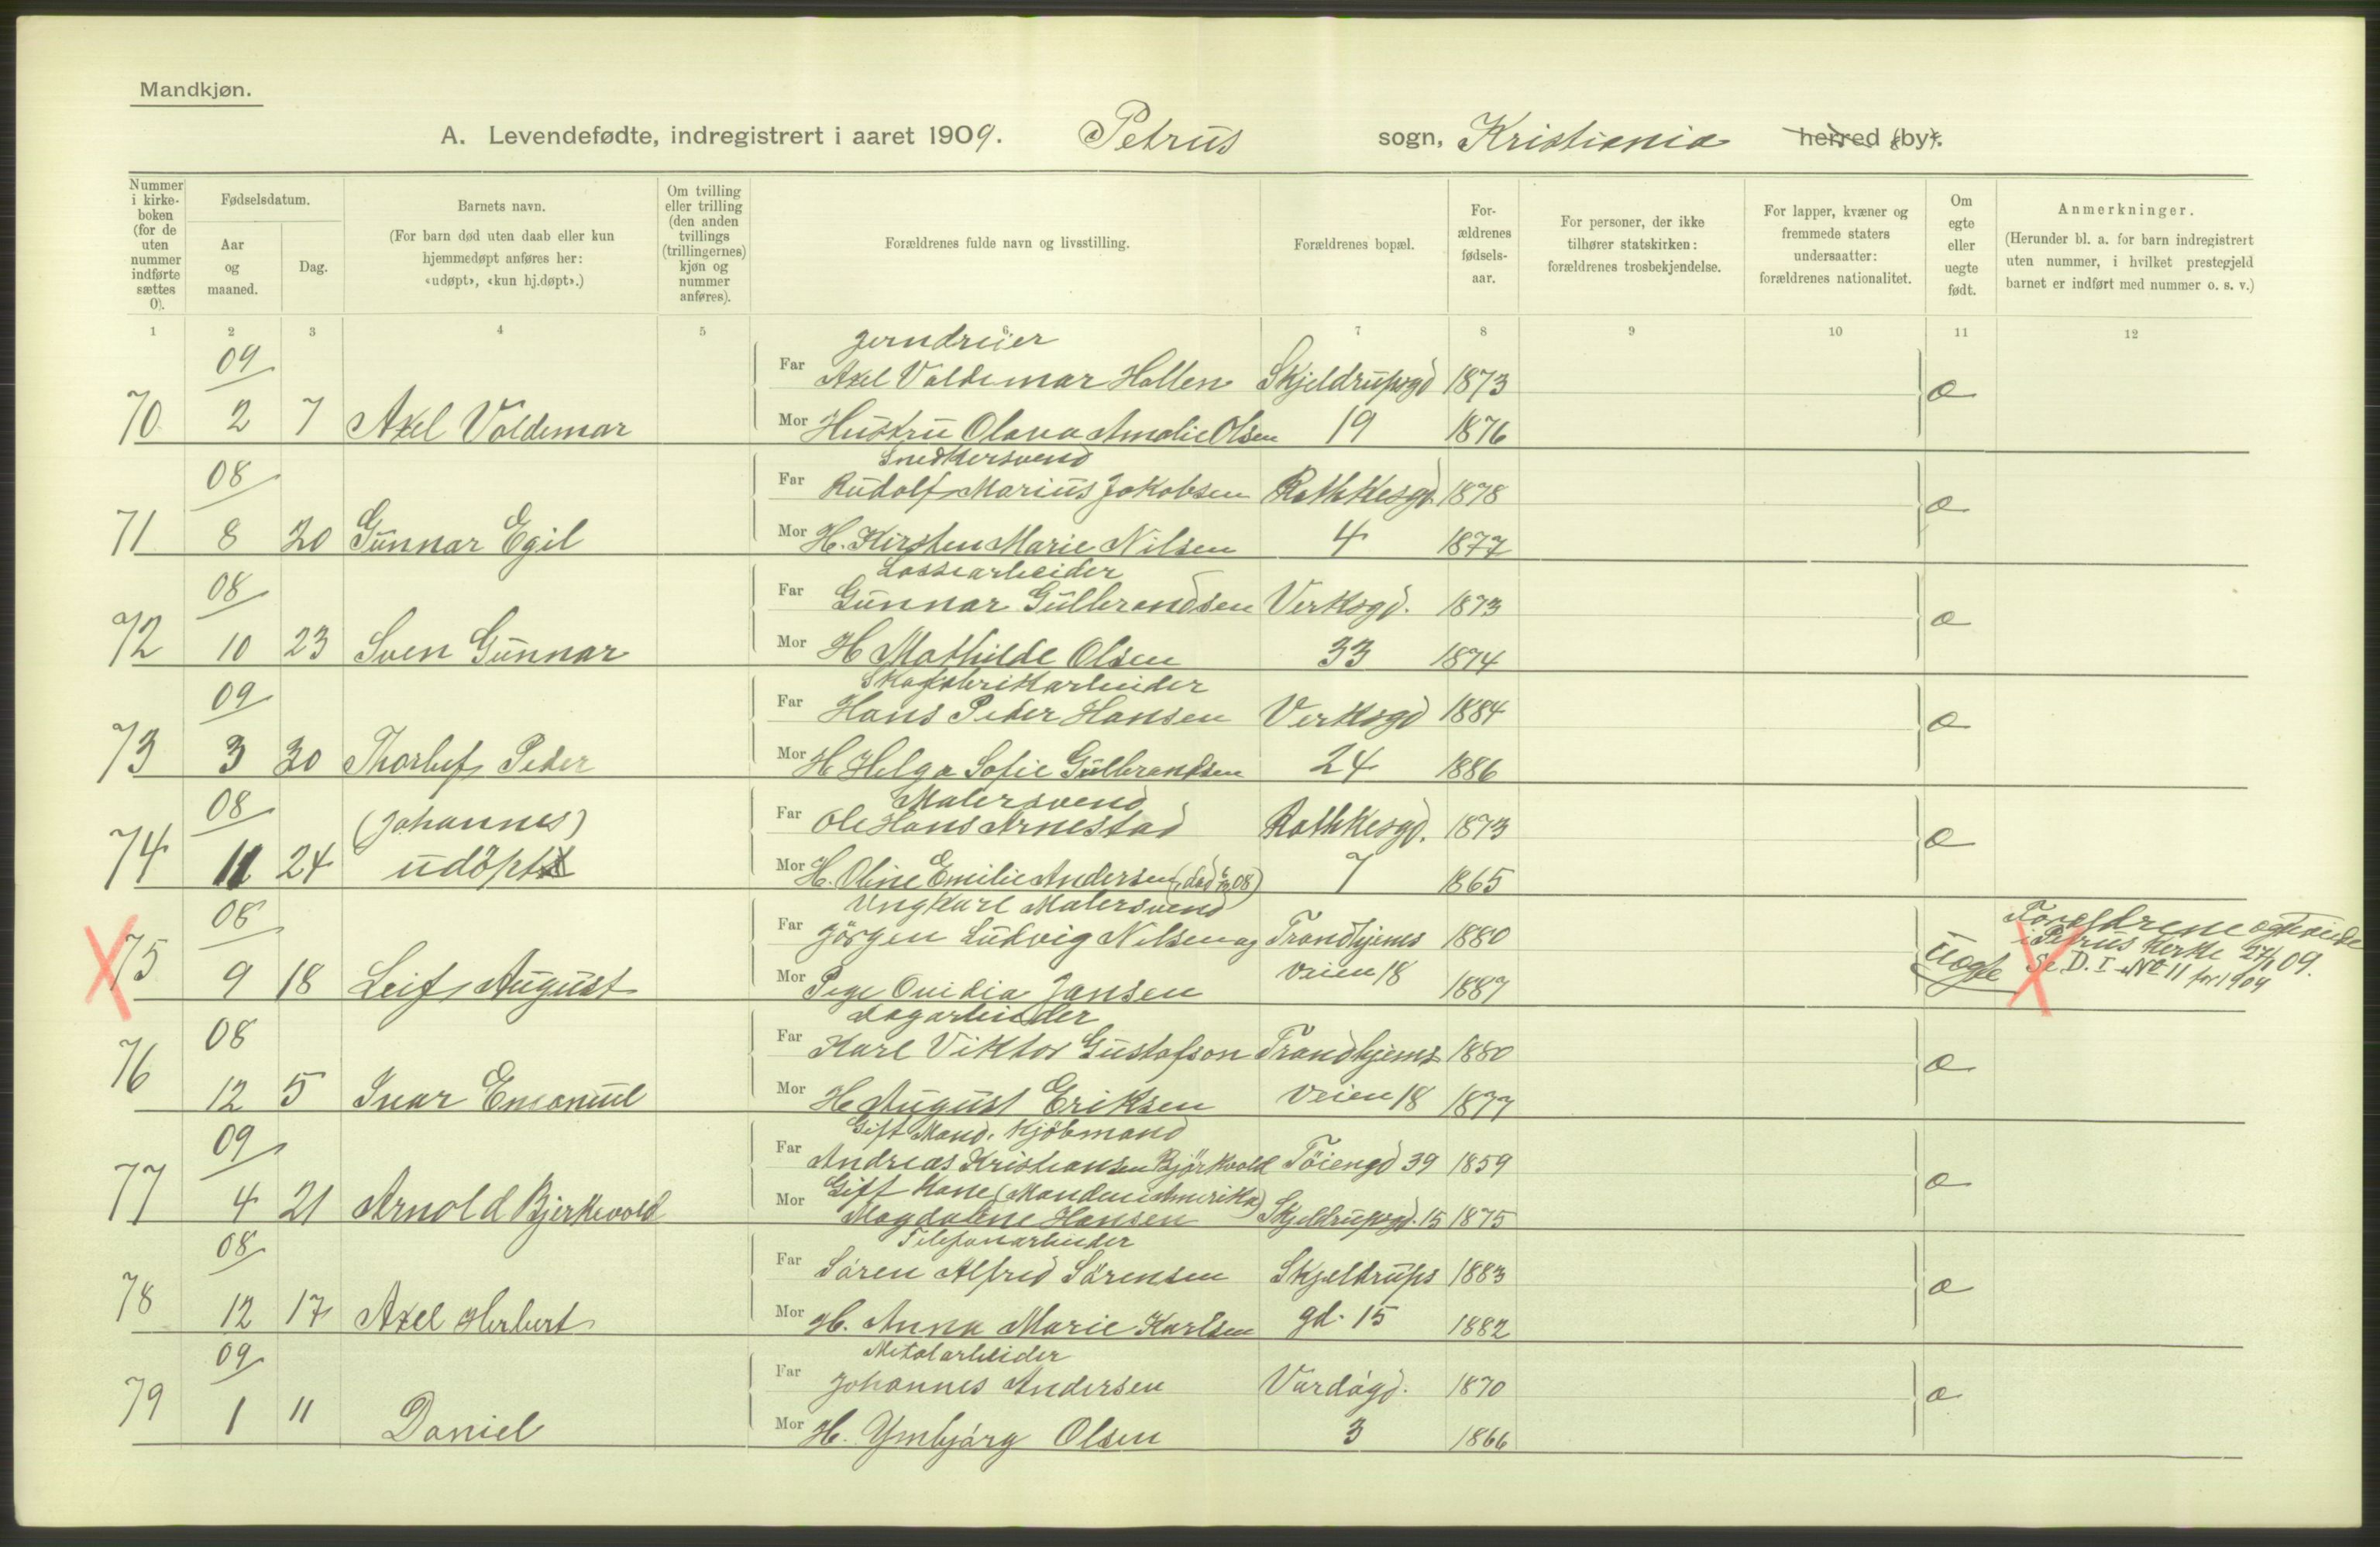 Mandkjøn.
A. Levendefødte, indregistrert i aaret 1909. Petrus sogn, Kristiania herred (by).
Nummer i kirkeboken (for de uten nummer indførte sættes 0).
Fødselsdatum.
Aar og maaned.
Dag.
Barnets navn.
(For barn død uten daab eller kun hjemmedøpt anføres her: «udøpt», «kun hj.døpt».)
Om tvilling eller trilling (den anden tvillings (trillingernes) kjøn og nummer anføres).
Forældrenes fulde navn og livsstilling.
Forældrenes bopæl.
For-ældrenes fødsels-aar.
For personer, der ikke tilhører statskirken: forældrenes trosbekjendelse.
For lapper, kvæner og fremmede staters undersaatter: forældrenes nationalitet.
Om egte eller uegte født.
Anmerkninger.
(Herunder bl. a. for barn indregistrert uten nummer, i hvilket prestegjeld barnet er indført med nummer o. s. v.)
1 2 3 4 5 6 7 8 9 10 11 12
09 Jerndreier
Far Axel Valdemar Hallen Skjeldrupsgd 1873 æ
70 2 7 Axel Valdemar Mor Hustru Olava Amalie Olsen 19 1876
08 Snedkersvend
Far Rudolf Marius Jakobsen Rathkesgd. 1878 æ
71 8 20 Gunnar Egil Mor H. Kirsten Marie Nilsen 4 1877
08 Lossearbeider
Far Gunnar Gulbrandsen Verksgd. 1873 æ
72 10 23 Sven Gunnar Mor H Mathilde Olsen 33 1874
09 Skofabrikarbeider
Far Hans Peder Hansen Verksgd 1884 æ
73 3 30 Thorlief Peder Mor H Helga Sofie Gulbrandsen 24 1886
08 (Johannes) Malersvend
Far Ole Hans Arnestad Rathkesgd. 1873 æ
74 11 24 udöpt Mor H. Oline Emilie Andersen (død 08) 7 1865
08 Ungkarl Malersvend
Far Jörgen Ludvig Nilsen og Trondhjems 1880 Uegte Forældrene egteviede
i Petrus Kirke 27/1 09.
75 9 18 Leif August Mor Pige Ovidia Jansen veien 18 1887 Se D. I No 11 for 1909
08 Dagarbeider
Far Karl Viktor Gustafson Trondhjems 1880 æ
76 12 5 Ivar Emanuel Mor H August Eriksen veien 18 1877
09 Gift Mand. Kjöbmand
Far Andreas Kristiansen Björkvold Töiengd 39 1859 æ
Gift Kone (Manden i Amerika)
77 4 21 Arnold Bjerkevold Mor Magdalene Hansen Skjeldrupsgd. 15 1875
08 Telefonarbeider
Far Sören Alfred Sörensen Skjeldrups 1883 æ
78 12 17 Axel Herbert Mor H. Anna Marie Karlsen gd. 15 1882
09 Metalarbeider
Far Johannes Andersen Vardögd. 1870 æ
79 1 11 Daniel Mor H. Ymbjörg Olsen 3 1866